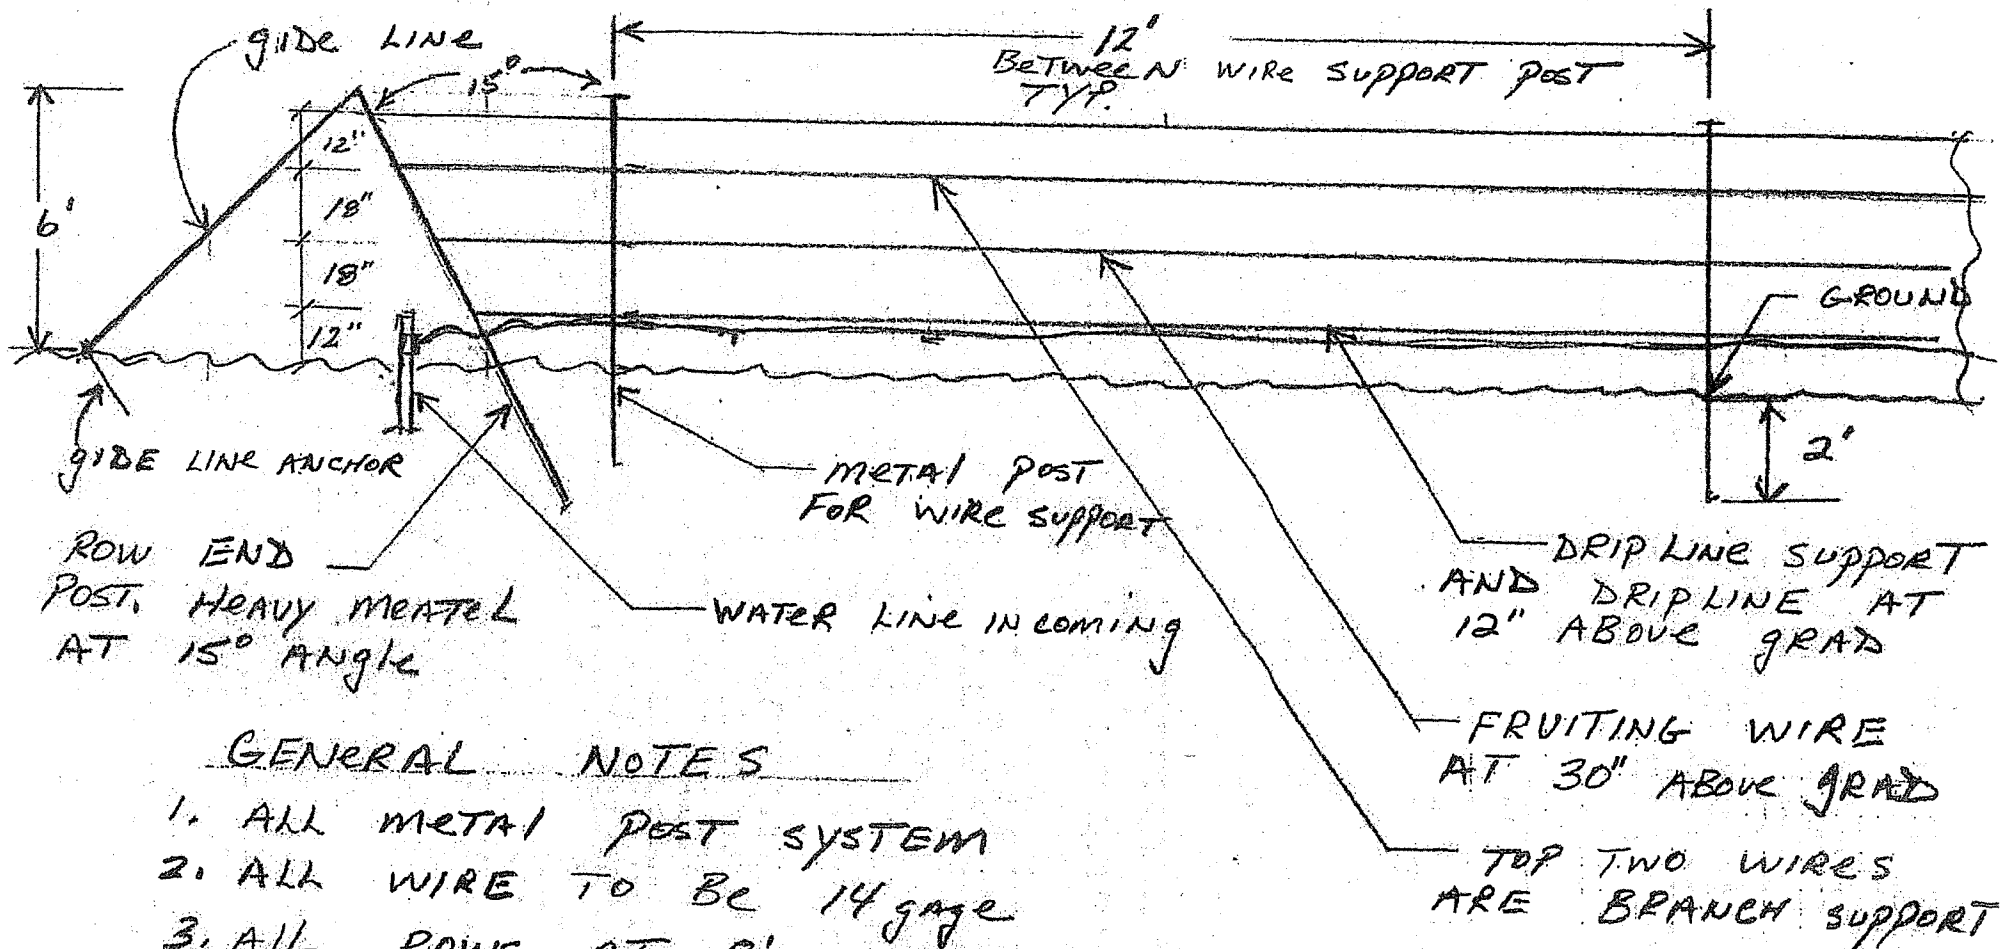 gIDe LINe
15°
12'
BeTweeN WIRe SUPPORT POST
TYP.
6'
12"
18"
18"
12"
GROUND
2'
gIDE LINe ANCHOR
meTAl POST
FOR WIRe SUPPORT
ROW END
POST. HeAVy meATeL
AT 15° ANgle
WATeR LINe INcomINg
DRIP LINe SUPPORT
AND DRIPLINE AT
12" ABove gRAD
FRUITING WIRE
AT 30" ABove gRAD
TOP TWO WIReS
ARE BRANCH SUPPORT
GENeRAL NOTES
1. ALL meTAl POST SYSTEM
2. ALL WIRE TO Be 14 gAge
3. ALL ROWS AT